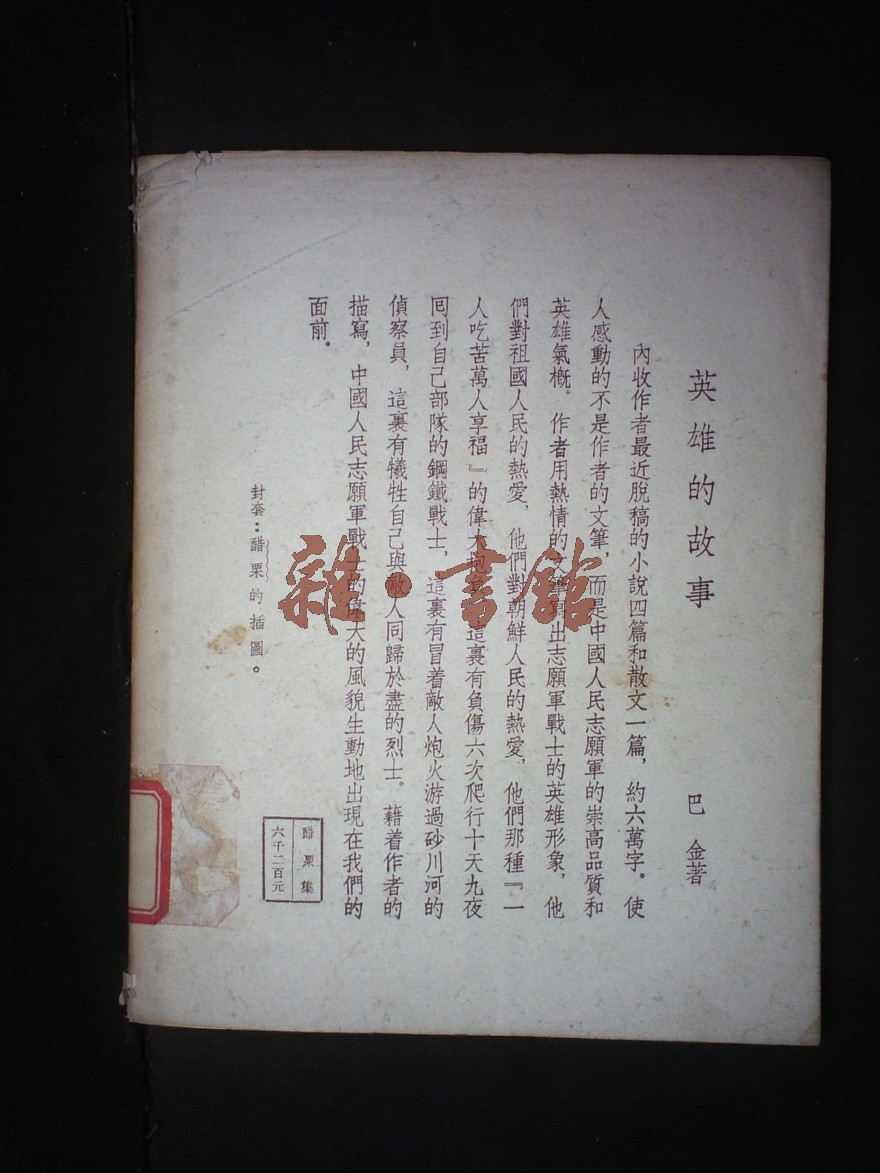 英雄的故事
巴金著
內收作者最近脫稿的小說四篇和散文一篇，約六萬字。使
人感動的不是作者的文筆，而是中國人民志願軍的崇高品質和
英雄氣概。作者用熱情的文筆寫出志願軍戰士的英雄形象，他
們對祖國人民的熱愛，他們對朝鮮人民的熱愛，他們那種『一
人吃苦萬人享福』的偉大抱負。這裏有負傷六次爬行十天九夜
囘到自己部隊的鋼鐵戰士，這裏有冒着敵人炮火游過砂川河的
偵察員，這裏有犧牲自己與敵人同歸於盡的烈士。藉着作者的
描寫，中國人民志願軍戰士的偉大的風貌生動地出現在我們的
面前。
封套：醋栗的插圖。
醋栗集
六千二百元
雜·書館